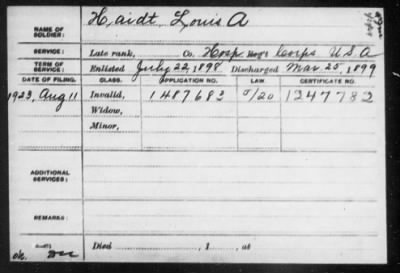 NAME OF SOLDIER: Haidt, Louis A
SERVICE: Late rank, Co. Hosp Reg't Corps U.S.A
TERM OF SERVICE: Enlisted July 22, 1898 Discharged Mar 25, 1899
DATE OF FILING. CLASS. APPLICATION NO. LAW CERTIFICATE NO.
1923, Aug 11 Invalid, 1487683 1247782
Widow,
Minor,
ADDITIONAL SERVICES:
REMARKS:
Died , 1 , at